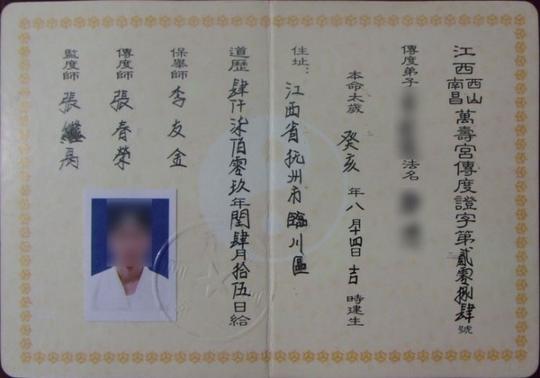 江西南昌西山萬壽宮傳度證字第貳零捌肆號
傳度弟子 法名
本命太歲 癸亥 年八月十四日吉時建生
住址：江西省抚州市臨川區
道歷肆仟柒佰零玖年閏肆月拾伍日給
保舉師 李友金
傳度師 張春榮
監度師 張繼禹